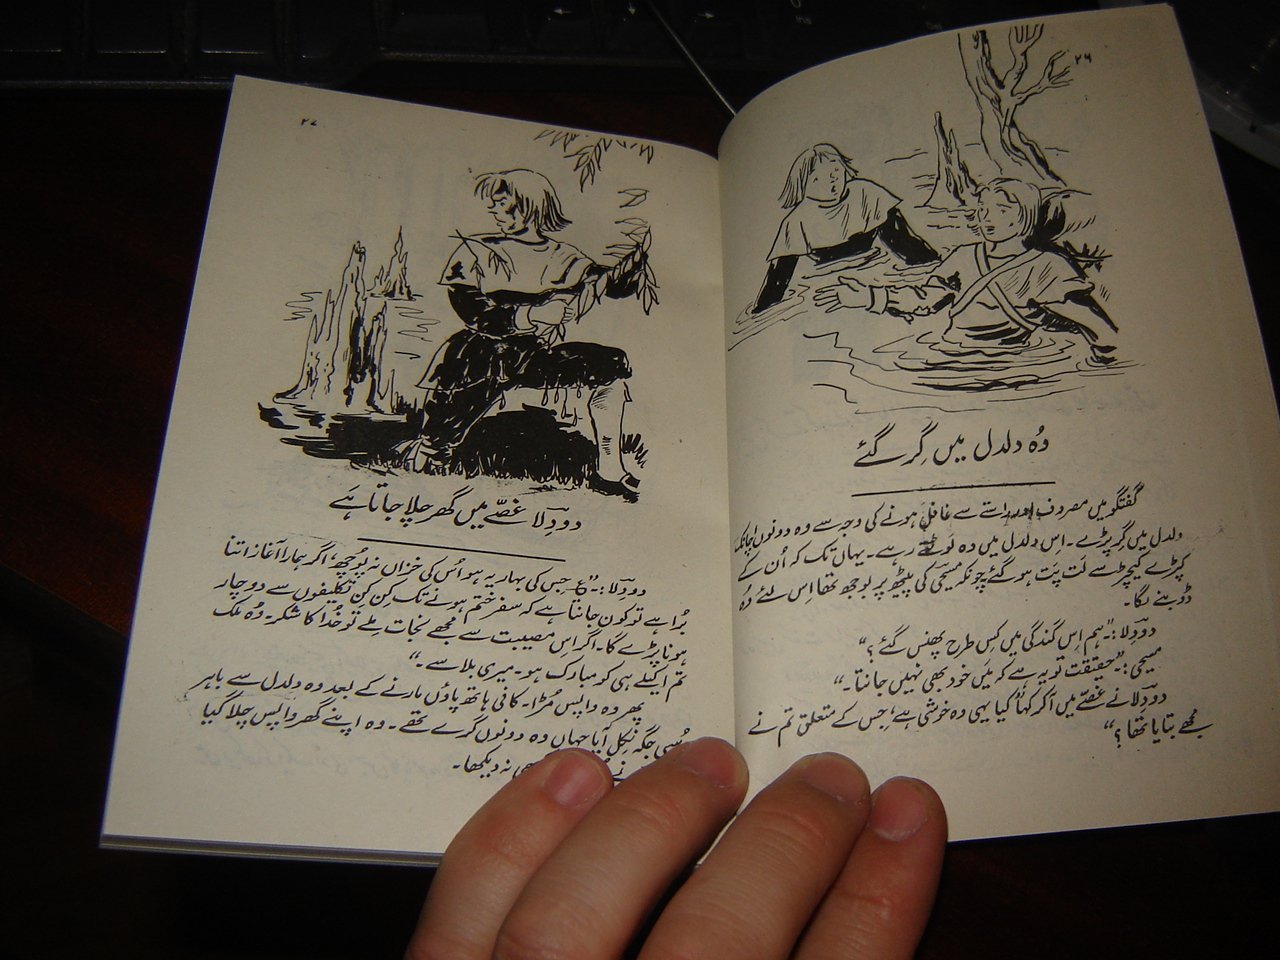 ۲۶
وُہ دلدل میں گِر گئے
گفتگو میں مصروف اور راستے سے غافل ہونے کی وجہ سے وہ دونوں اچانک
دلدل میں گر پڑے۔ اِس دلدل میں وہ لَوٹتے رہے۔ یہاں تک کہ اُن کے
کپڑے کیچڑ سے لت پَت ہو گئے چونکہ مسیحی کی پیٹھ پر بوجھ تھا اِس لئے وُہ
ڈوبنے لگا۔
دودِلا:۔”ہم اِس گندگی میں کِس طرح پھنس گئے؟“
مسیحی:۔”حقیقت تو یہ ہے کہ مَیں خود بھی نہیں جانتا۔“
دودِلا نے غصّے میں آ کر کہا کیا یہی وہ خوشی ہے، جِس کے متعلق تم نے
مجھے بتایا تھا؟“
۲۷
دودِلا غصّے میں گھر چلا جاتا ہَے
دودِلا:۔”ع جس کی بہار یہ ہو اُس کی خزاں نہ پُوچھ! اگر ہمارا آغاز اتنا
بُرا ہے تو کون جانتا ہے کہ سفر ختم ہونے تک کِن کِن تکلیفوں سے دوچار
ہونا پڑے گا۔ اگر اس مصیبت سے مُجھے نجات مِلے تو خُدا کا شکر۔ وُہ ملک
تم اکیلے ہی کو مبارک ہو۔ میری بلا سے۔“
پھر وہ واپس مُڑا۔ کافی ہاتھ پاؤں مارنے کے بعد وہ دلدل سے باہر
اُسی جگہ نِکل آیا جہاں وہ دونوں گرے تھے۔ وہ اپنے گھر واپس چلا گیا
نے بھی نہ دیکھا۔